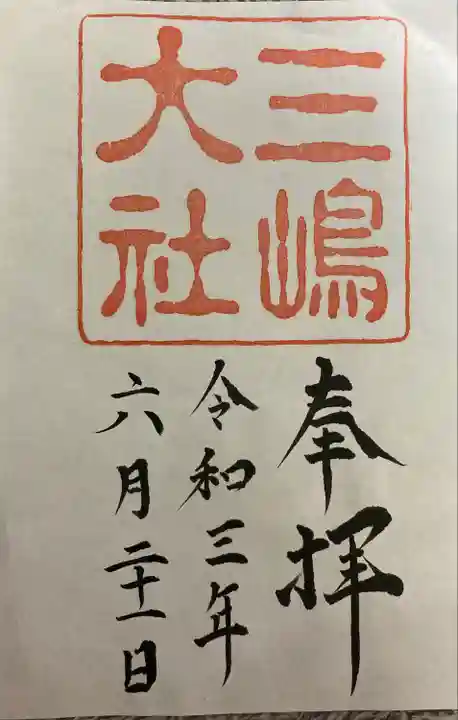 三嶋
大社
奉拝
令和三年
六月二十一日